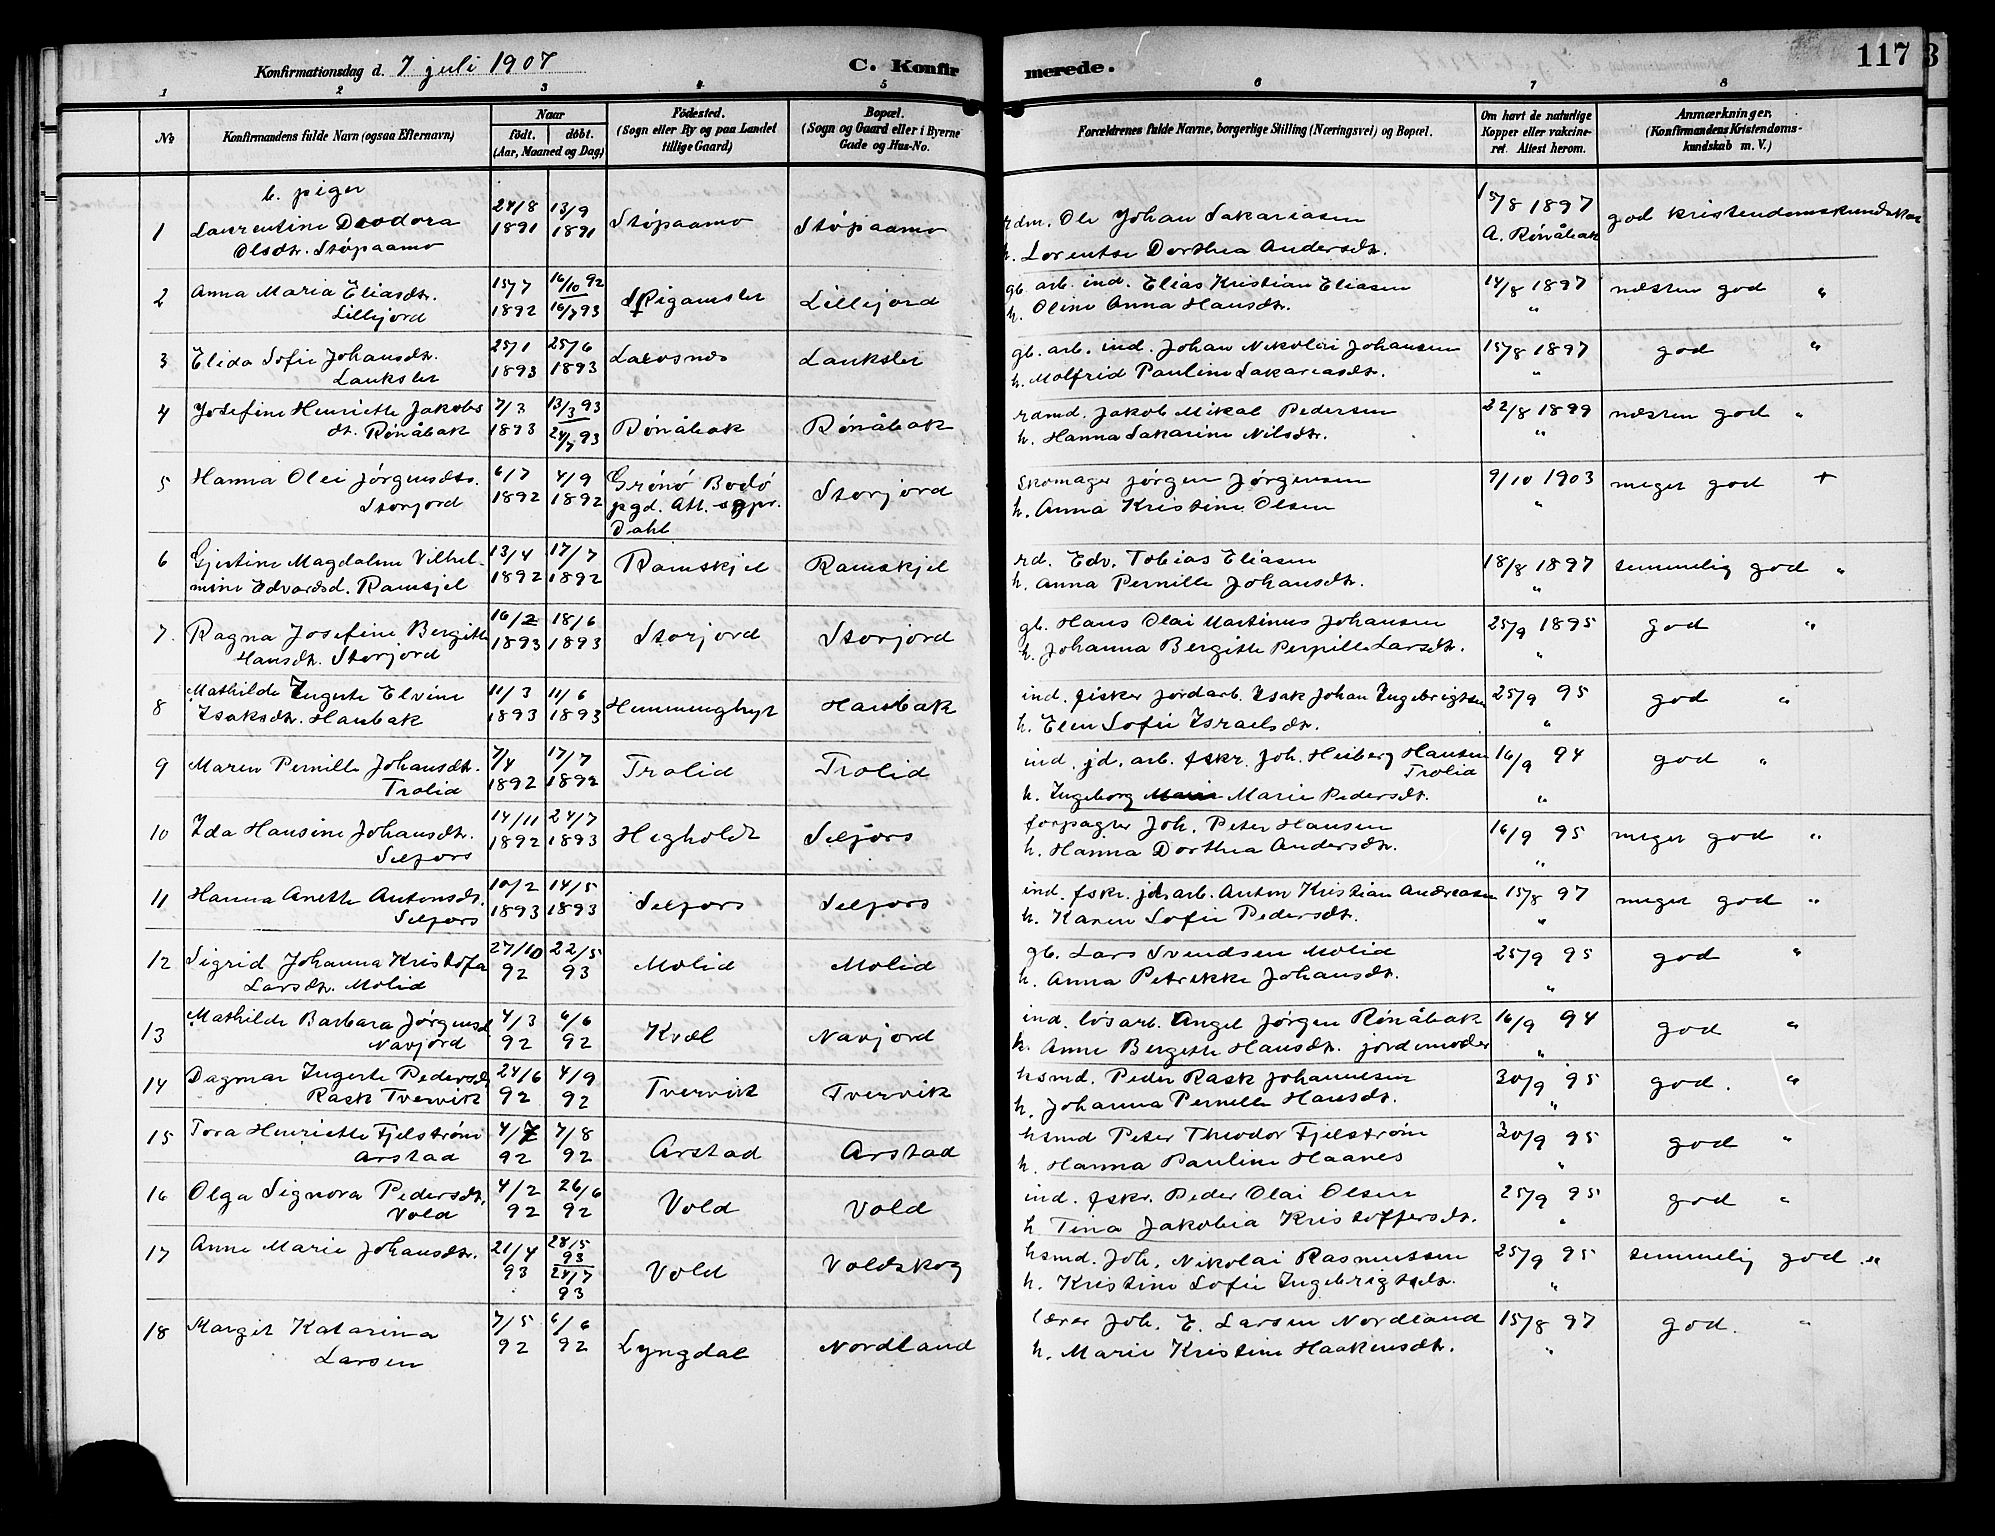 Konfirmationsdag d. 7 juli 1907 C. Konfirmerede. 117
1 2 3 4 5 6 7 8
No
Konfirmandens fulde Navn (ogsaa Efternavn)
Naar
født. døbt.
(Aar, Maaned og Dag)
Fødested.
(Sogn eller By og paa Landet
tillige Gaard)
Bopæl.
(Sogn og Gaard eller i Byerne
Gade og Hus-No.
Forældrenes fulde Navne, borgerlige Stilling (Næringsvei) og Bopæl.
Om havt de naturlige
Kopper eller vakcine-
ret. Attest herom.
Anmærkninger.
(Konfirmandens Kristendoms-
kundskab m. V.)
b. piger
1 Laurentine Deodora 24/8 13/9 Støpaamo Støpaamo rdm. Ole Johan Sakariasen 15/8 1897 god kristendomskundskab
Olsdtr. Støpaamo 1891 1891 h. Lorentse Dorthea Andersdtr. A. Rønåbak
2 Anna Maria Eliasdtr. 15/7 16/10 92 Lillejord gb. arb. ind. Elias Kristian Eliasen 14/8 1897 næsten god "
Lillejord 1892 16/7 93 h. Oline Anna Hansdtr. "
3 Elida Sofie Johansdtr. 25/1 25/6 Laxosnes Lauksler gb. arb. ind. Johan Nikolai Johansen 15/8 1897 god "
Lauksler 1893 1893 h. Molfrid Pauline Sakariasdtr. "
4 Josefine Henriette Jakobs 7/3 13/3 93 Rønåbak Rønåbak rdmd. Jakob Mikal Pedersen 22/8 1899 næsten god "
dt. Rønåbak 1893 24/7 93 h. Hanna Sakarine Nilsdtr. "
5 Hanna Olei Jørgensdtr. 6/7 4/9 Grønø Bodø Storjord Skomager Jørgen Jørgensen 9/10 1903 meget god +
Storjord 1892 1892 pgd. Att. sgpr. h. Anna Kristine Olsen "
Dahl
6 Gjertine Magdalene Vilhel- 13/4 17/7 Ramskjel Ramskjel rd. Edv. Tobias Eliasen 18/8 1897 temmelig god "
mine Edvardsd. Ramsjel 1892 1892 h. Anna Pernille Johansdtr. "
7. Ragna Josefine Bergitte 16/2 18/6 Storjord Storjord gb. Hans Olai Martinus Johansen 25/9 1895 god "
Hansdtr. Storjord 1893 1893 h. Johanna Bergitte Pernille Larsdtr. "
8 Mathilde Ingerte Elvine 11/3 11/6 Haubak ind. fisker jordarb. Isak Johan Ingebrigtsen 25/9 95 god "
Isaksdtr. Haubak 1893 1893 h. Elen Sofie Israelsdtr. "
9 Maren Pernille Johansdtr. 7/4 17/7 Trolid Trolid ind. jd. arb. fskr. Joh. Heiberg Hansen 16/9 94 god "
Trolid 1892 1892 Trolid
h. Ingeborg Marie Pedersdtr. "
10 Ida Hansine Johansdtr. 14/11 24/7 Hegholdt Selfors forpagter Joh. Peter Hansen 16/9 95 meget god "
Selfors 1892 1893 h. Hanna Dorthea Andersdtr. "
11 Hanna Anette Antonsdtr. 10/2 14/5 Selfors Selfors ind. fskr. jdsarb. Anton Kristian Andreasen 15/8 97 meget god "
Selfors 1893 1893 h. Karen Sofie Pedersdtr. "
12 Sigrid Johanna Kristofa 27/10 22/5 Molid Molid gb. Lars Svendsen Molid 25/9 95 god "
Larsdtr. Molid 92 93 h. Anna Petrikke Johansdtr. "
13 Mathilde Barbara Jørgensd. 4/3 6/6 Kvæl Navjord ind. løsarb. Angel Jørgen Rønåbak 16/9 94 god "
Navjord 92 92 h. Anne Bergette Hansdtr. jordemoder "
14 Dagmar Ingerte Pedersd. 24/6 4/9 Tvervik Tvervik hsmd. Peder Rask Johannesen 30/9 95 god. "
Rask Tvervik 92 92 h. Johanna Pernille Hansdtr. "
15 Tora Henriette Fjelstrøm 4/7 7/8 Arstad Arstad hsmd Peter Theodor Fjelstrøm 30/9 95 god "
Arstad 92 92 h. Hanna Pauline Haanes "
16 Olga Signora Pedersdtr. 4/2 26/6 Vold Vold ind. fskr. Peder Olai Olsen 25/9 95 god "
Vold 92 92 h Tina Jakobia Kristoffersdtr. "
17 Anne Marie Johansdtr. 21/4 28/5 93 Vold Voldskog hsmd. Joh. Nikolai Rasmussen 25/9 95 temmelig god "
93 24/7 93 h. Kristine Sofie Ingebrigtsdtr. "
18 Margit Katarina 7/5 6/6 Lyngdal Nordland lærer Joh. E. Larsen Nordland 15/8 97 god. "
Larsen 92 92 h. Marie Kristine Haakensdtr. "